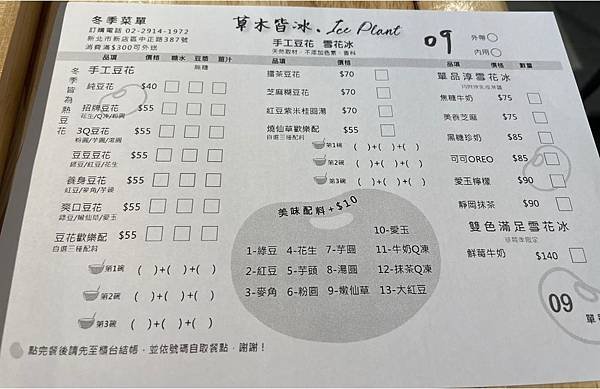 冬季菜單
訂購電話 02-2914-1972
新北市新店區中正路387號
消費滿$300可外送
草木皆冰.Ice Plant
手工豆花 雪花冰
天然取材,不添加色素、香料
09
外帶
內用
品項 價格 糖水 豆漿 薑汁
冬季皆為熱豆花
手工豆花
無糖
純豆花 $40
招牌豆花 $55
花生/Q凍/粉圓
3Q豆花 $55
粉圓/芋圓/湯圓
豆豆豆花 $55
綠豆/紅豆/花生
養身豆花 $55
紅豆/麥角/芋頭
爽口豆花 $55
綠豆/嫩仙草/愛玉
豆花歡樂配 $55
自選三種配料
第1碗 ( )+( )+( )
第2碗 ( )+( )+( )
第3碗 ( )+( )+( )
點完餐後請先至櫃台結帳,並依號碼自取餐點,謝謝!
品項 價格
擂茶豆花 $70
芝麻糊豆花 $70
紅豆紫米桂圓湯 $70
燒仙草歡樂配 $70
自選三種配料
第1碗 ( )+( )+( )
第2碗 ( )+( )+( )
第3碗 ( )+( )+( )
美味配料+$10
10-愛玉
1-綠豆 4-花生 7-芋圓 11-牛奶Q凍
2-紅豆 5-芋頭 8-湯圓 12-抹茶Q凍
3-麥角 6-粉圓 9-嫩仙草 13-大紅豆
品項 價格 數量
單品淳雪花冰
焦糖牛奶 $75
美薔芝麻 $75
黑糖珍奶 $85
可可OREO $85
愛玉檸檬 $90
靜岡抹茶 $90
雙色滿足雪花冰
草莓季限定
鮮莓牛奶 $140
09
單